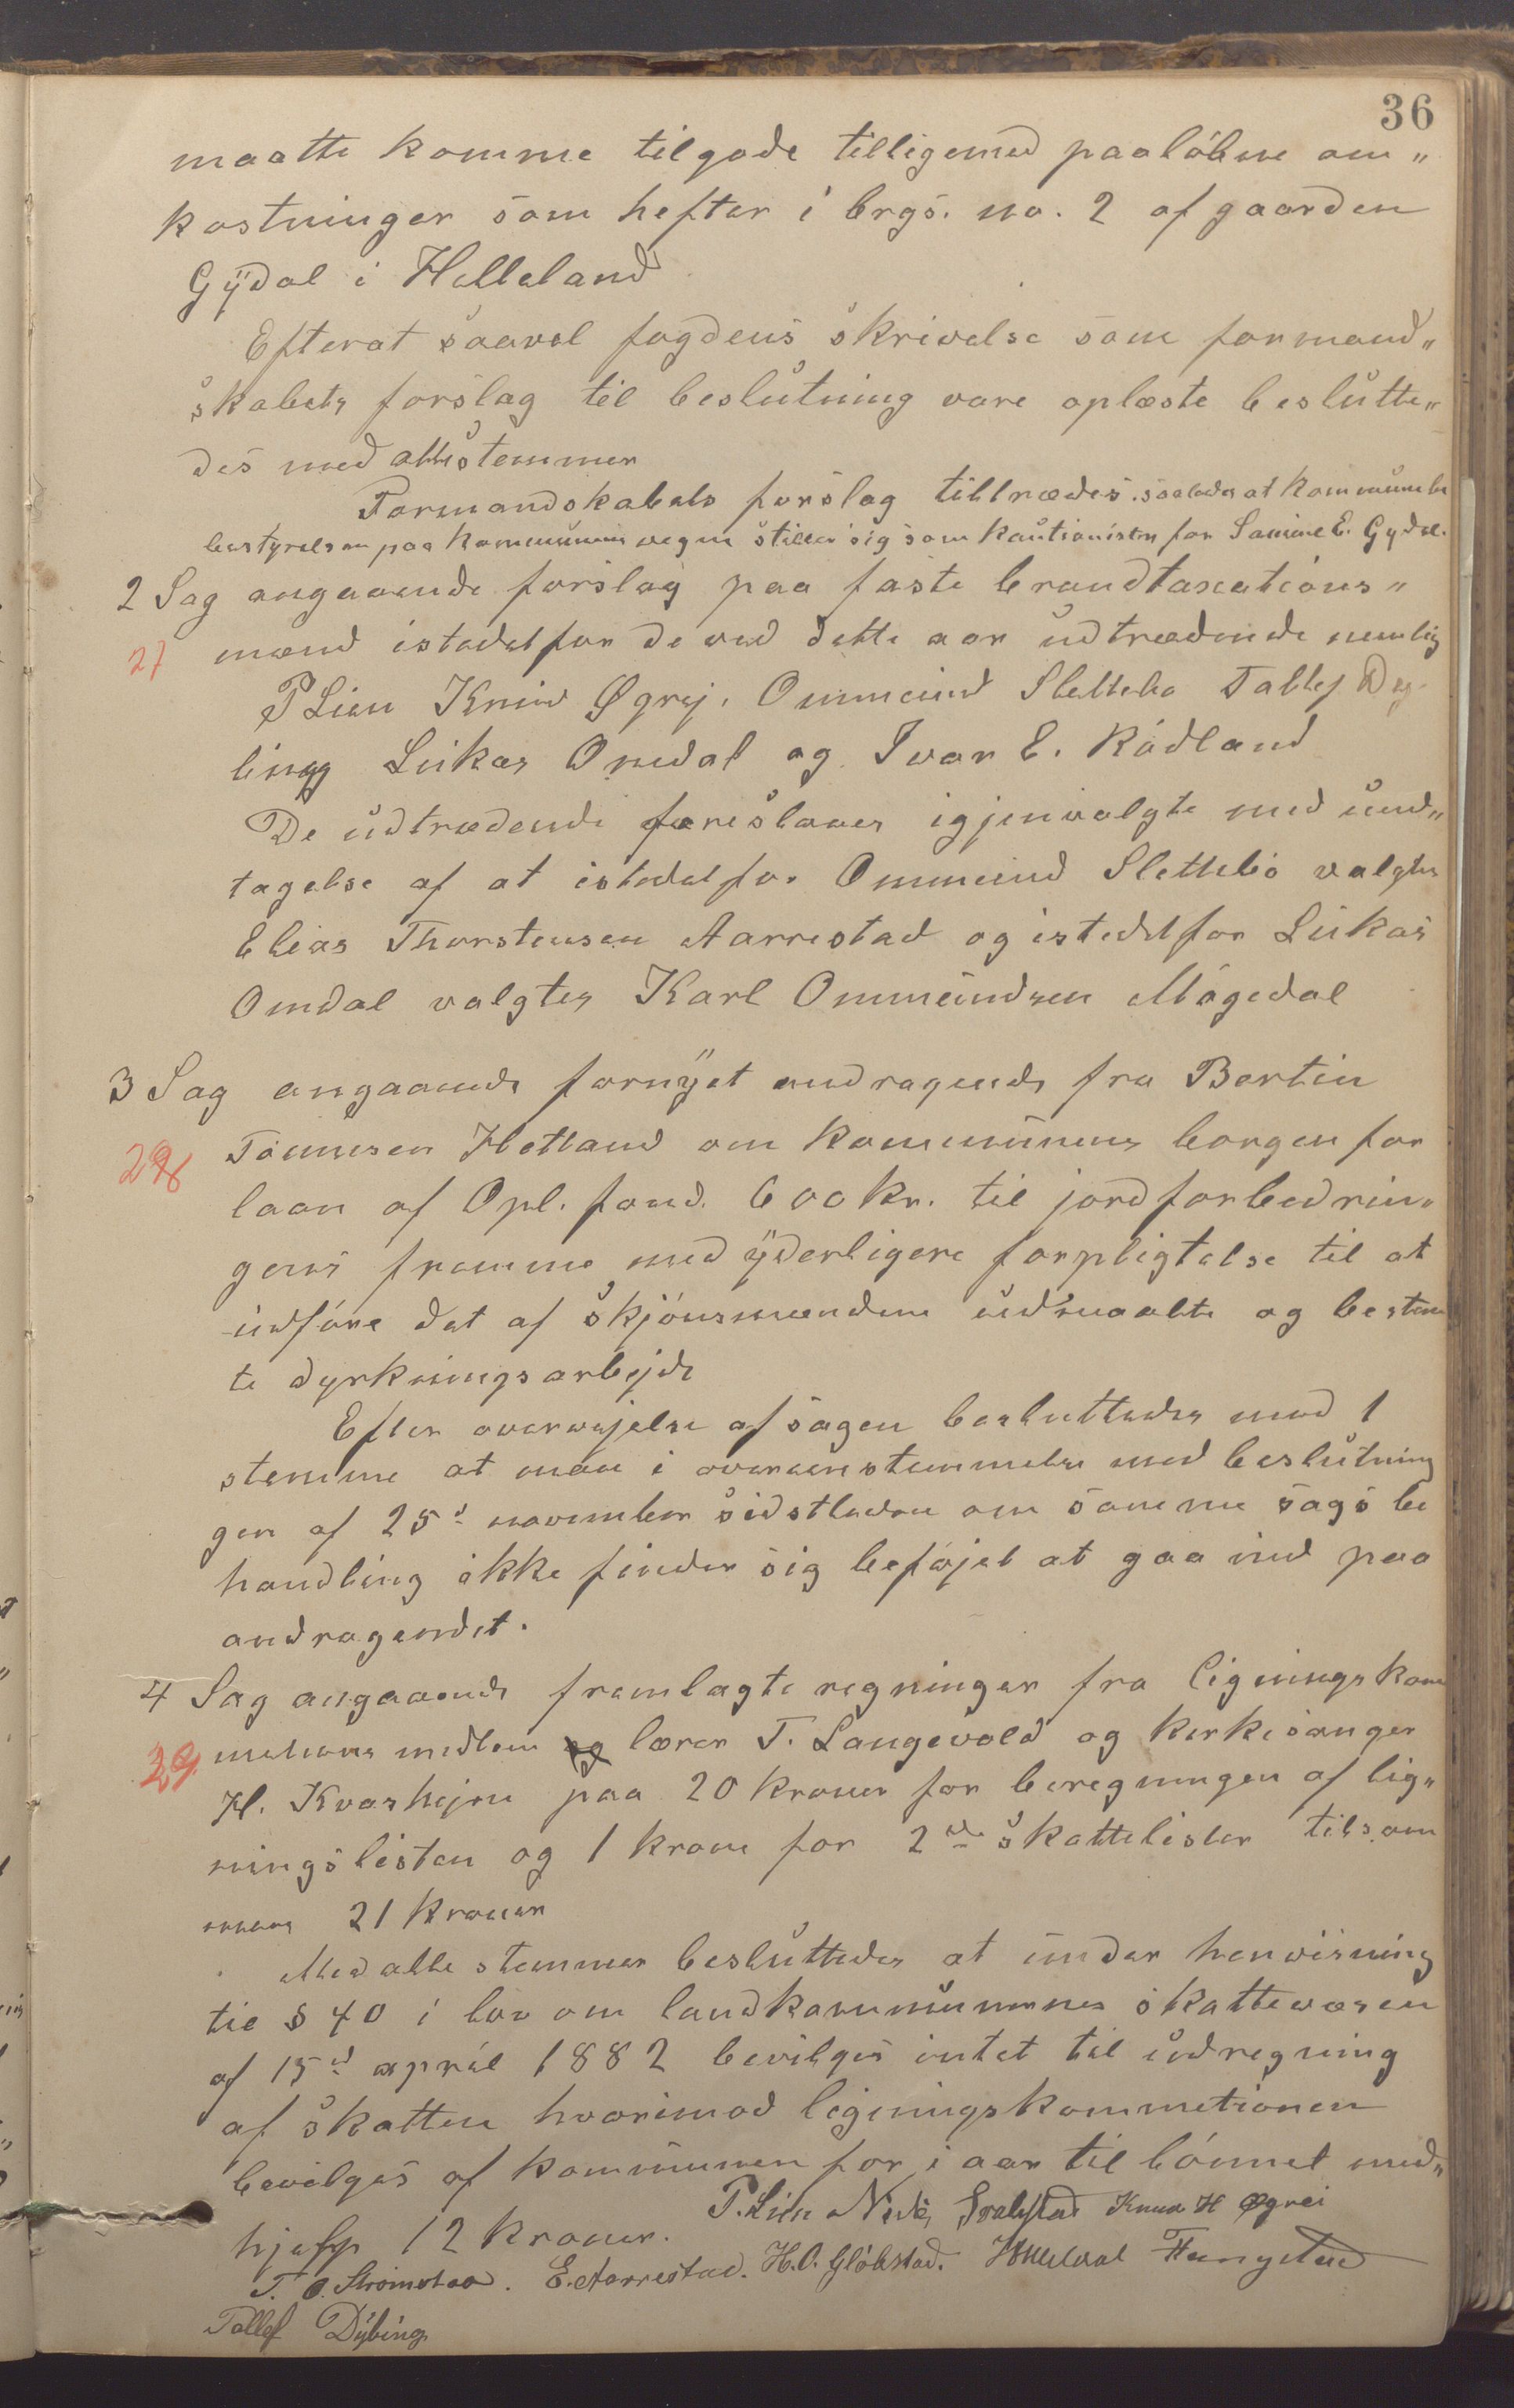 36
maatte komme tilgode tilligemed paaløbne om„
kostninger som hefter i brgs. no. 2 af gaarden
Gÿdal i Helleland
Efterat saavel fogdens skrivelse som formand„
skabets forslag til beslutning vare oplæste beslutte„
des med alle stemmer
Formandskabets forslag tiltrædes. saaledes at kommunebe
bestyrelsen paa kommunens vegne stiller sig som kautionister for E. Gydal.
2 Sag angaaende forslag paa faste brandtaxations„
27 mænd istedetfor de ved dette aar udtrædende nemlig
P Lien Knud Øgrej. Ommund Slettebø Tallef Dy
bing Lukas Omdal og Ivar E. Rødland
De udtrædende foreslaaes igjenvalgte med und„
tagelse af at istedetfor Ommund Slettebø valgtes
Elias Thorstensen Aarrestad og istedetfor Lukas
Omdal valgtes Karl Ommundsen Møgedal
3 Sag angaaende fornÿet andragende fra Bertin
28 Tønnesen Hetland om kommunens borgen for
laan af Opl. fond. 600 kr. til jordforbedrin„
gens fremme med ÿderligere forpligtelse til at
udføre det af skjønsmændene udmaalte og bestem
te dyrkningsarbejde
Efter overvejelse af sagen besluttedes med 1
stemme at man i overensstemmelse med beslutning
gen af 25d november sidstleden om samme sags be
handling ikke finder sig beføjet at gaa ind paa
andragendet.
4 Sag angaaende fremlagte regninger fra ligningskom
29. medlem og lærer T. Langevold og kirkesanger
H. Kvashejm paa 20 kroner for beregningen af lig„
ningslisten og 1 krone for 2de skattelister tilsam
mens 21 kroner
Med alle stemmer besluttedes at under henvisning
til § 40 i lov om landkommunernes skattevæsen
af 15d april 1882 bevilges intet til udregning
af skatten hvorimod ligningskommetionen
bevilges af kommunen for i aar til lønnet med„
hjelp 12 kroner.
P. Lien Knud H Øgrei
T. O. Strømstad. E. Aarrestad. H. O. Gløbstad.
Tallef Dÿbing